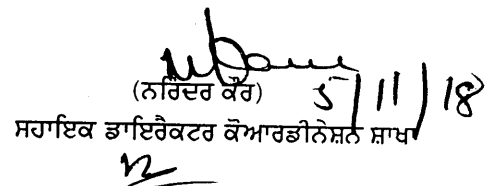 (ਨਰਿੰਦਰ ਕੌਰ) 5/11/18
ਸਹਾਇਕ ਡਾਇਰੈਕਟਰ ਕੋਆਰਡੀਨੇਸ਼ਨ ਸ਼ਾਖਾ